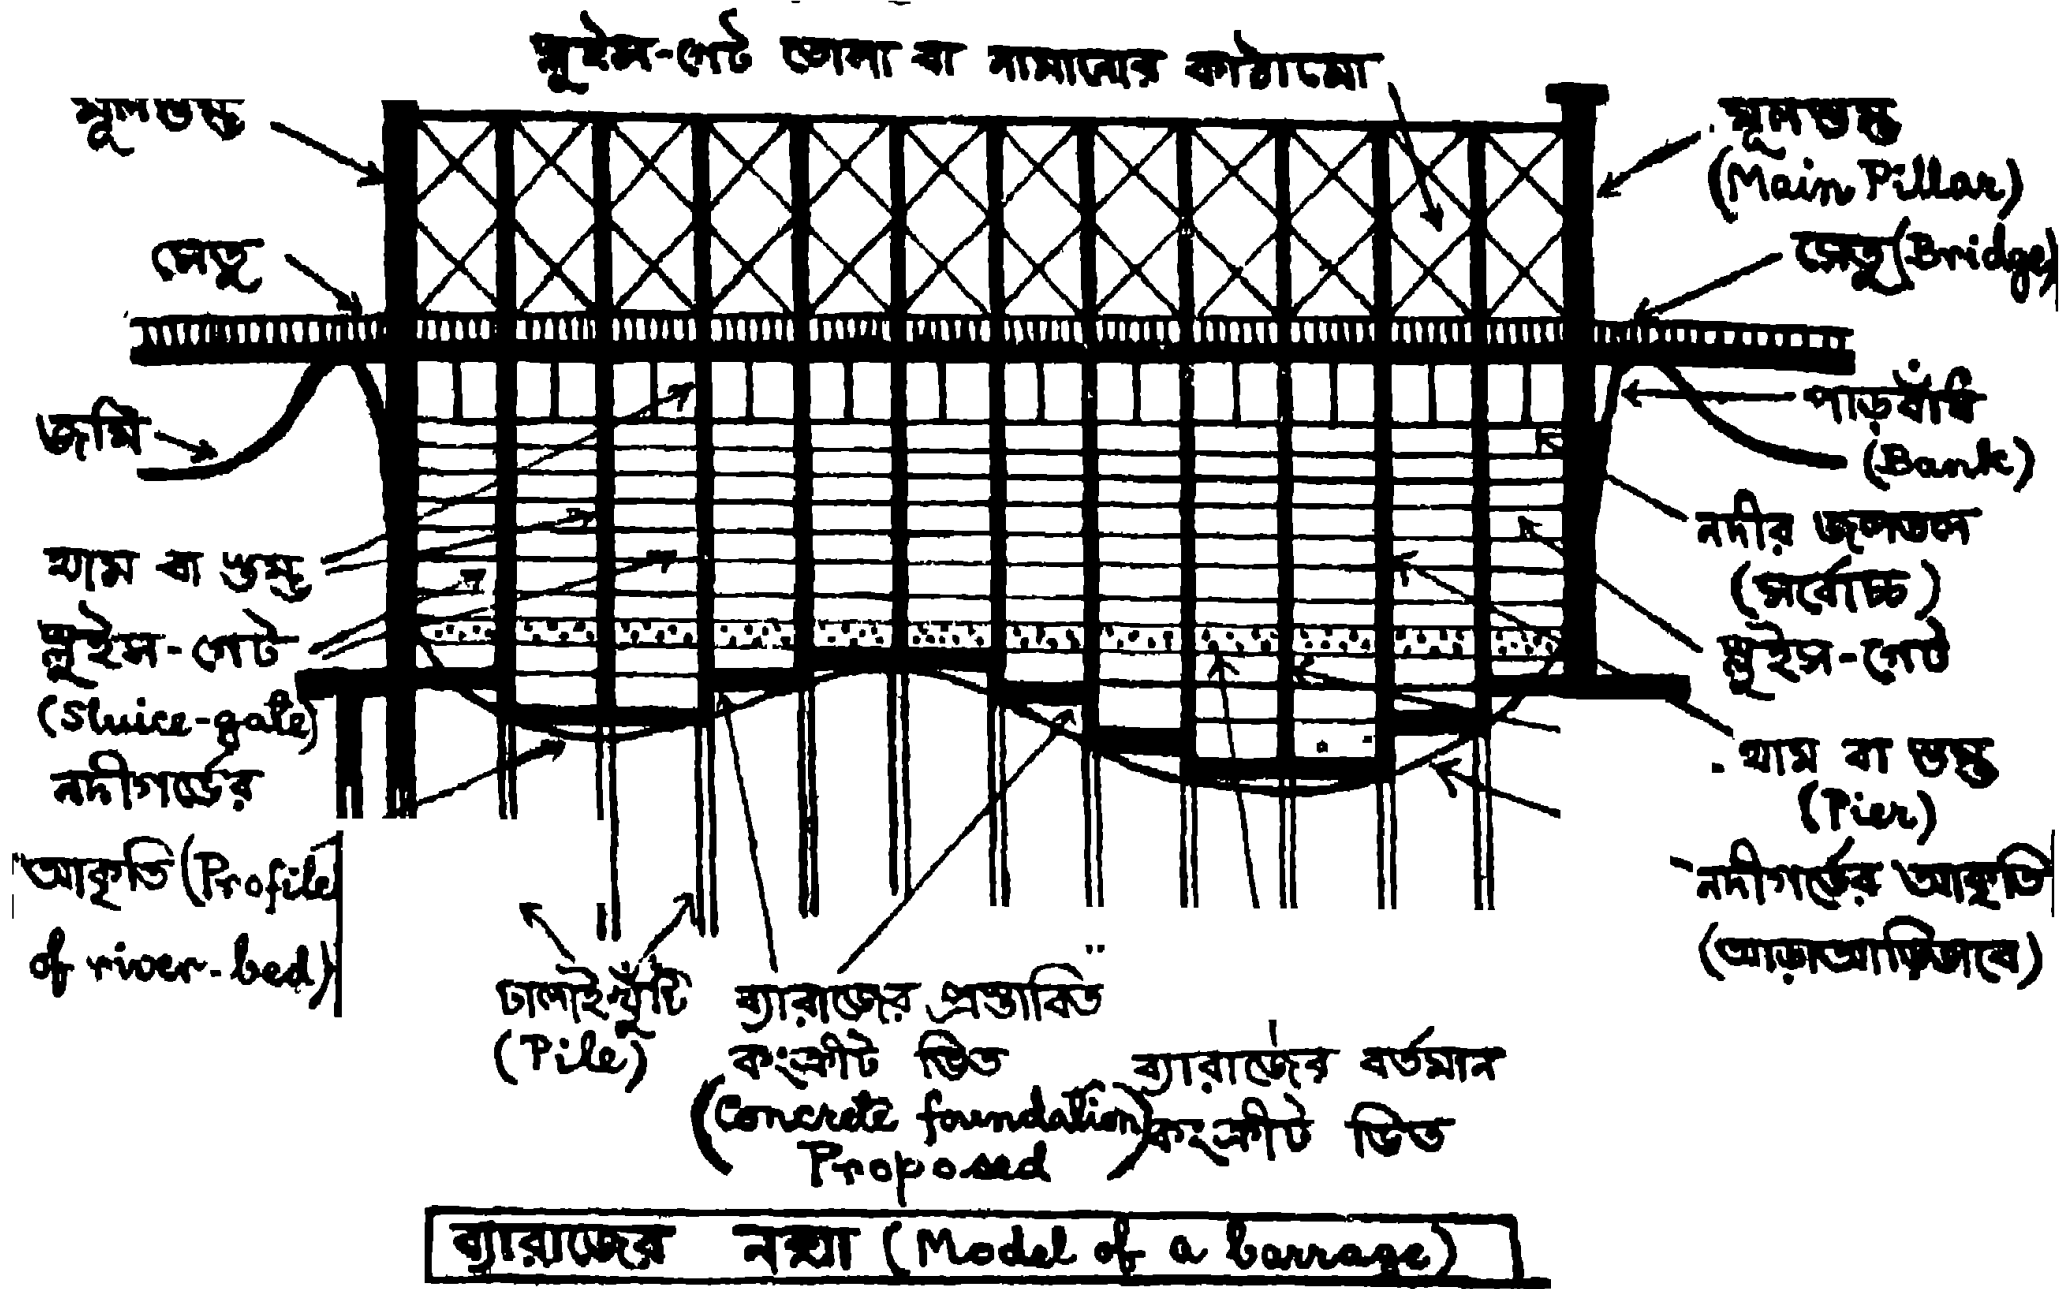 স্লুইস-গেট তোলা বা নামানোর কাঠামো
মূলস্তম্ভ
সেতু
জমি
থাম বা স্তম্ভ
স্লুইস-গেট
(Sluice-gate)
নদীগর্ভের
আকৃতি (Profile
of river-bed)
মূলস্তম্ভ
(Main Pillar)
সেতু (Bridge)
পাড়বাঁধ
(Bank)
নদীর জলতল
(সর্বোচ্চ)
স্লুইস-গেট
থাম বা স্তম্ভ
(Pier)
নদীগর্ভের আকৃতি
(আড়াআড়িভাবে)
ঢালাই খুঁটি
(Pile)
ব্যারাজের প্রস্তাবিত
কংক্রীট ভিত
(Concrete foundation)
Proposed
ব্যারাজের বর্তমান
কংক্রীট ভিত
ব্যারাজের নক্সা (Model of a barrage)